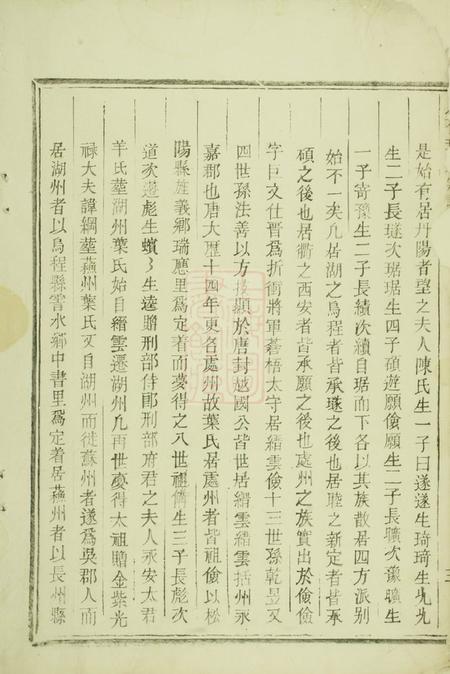 是始有居丹陽者望之夫人陳氏生一子曰遂遂生琦琦生先先
生二子長璲次琚琚生四子碩逰願儉願生二子長曠次豫曠生
一子寄豫生二子長績次續自琚而下各以其族散居四方派别
始不一矣凢居湖之烏程者皆承璲之後也居睦之新定者皆承
碩之後也居衢之西安者皆承願之後也處州之族實出於儉儉
字巨文仕晋爲折衝將軍蒼梧太守居縉雲儉十三世孫乾昱又
四世孫法善以方技顯於唐封越國公皆世居縉雲縉雲括州永
嘉郡也唐大歷十四年更名處州故葉氏居處州者皆祖儉以松
陽縣旌義鄉瑞應里爲定着而夢得之八世祖儕生三子長彪次
道次逰彪生蠙蠙生逵贈刑部侍郎刑部府君之夫人永安太君
羊氏塟湖州葉氏始自縉雲遷湖州凢再世夢得太祖贈金紫光
禄大夫諱綱塟蘓州葉氏又自湖州而徙蘇州者遂爲吳郡人而
居湖州者以烏程縣霅水鄉中書里爲定着居蘓州者以長州縣